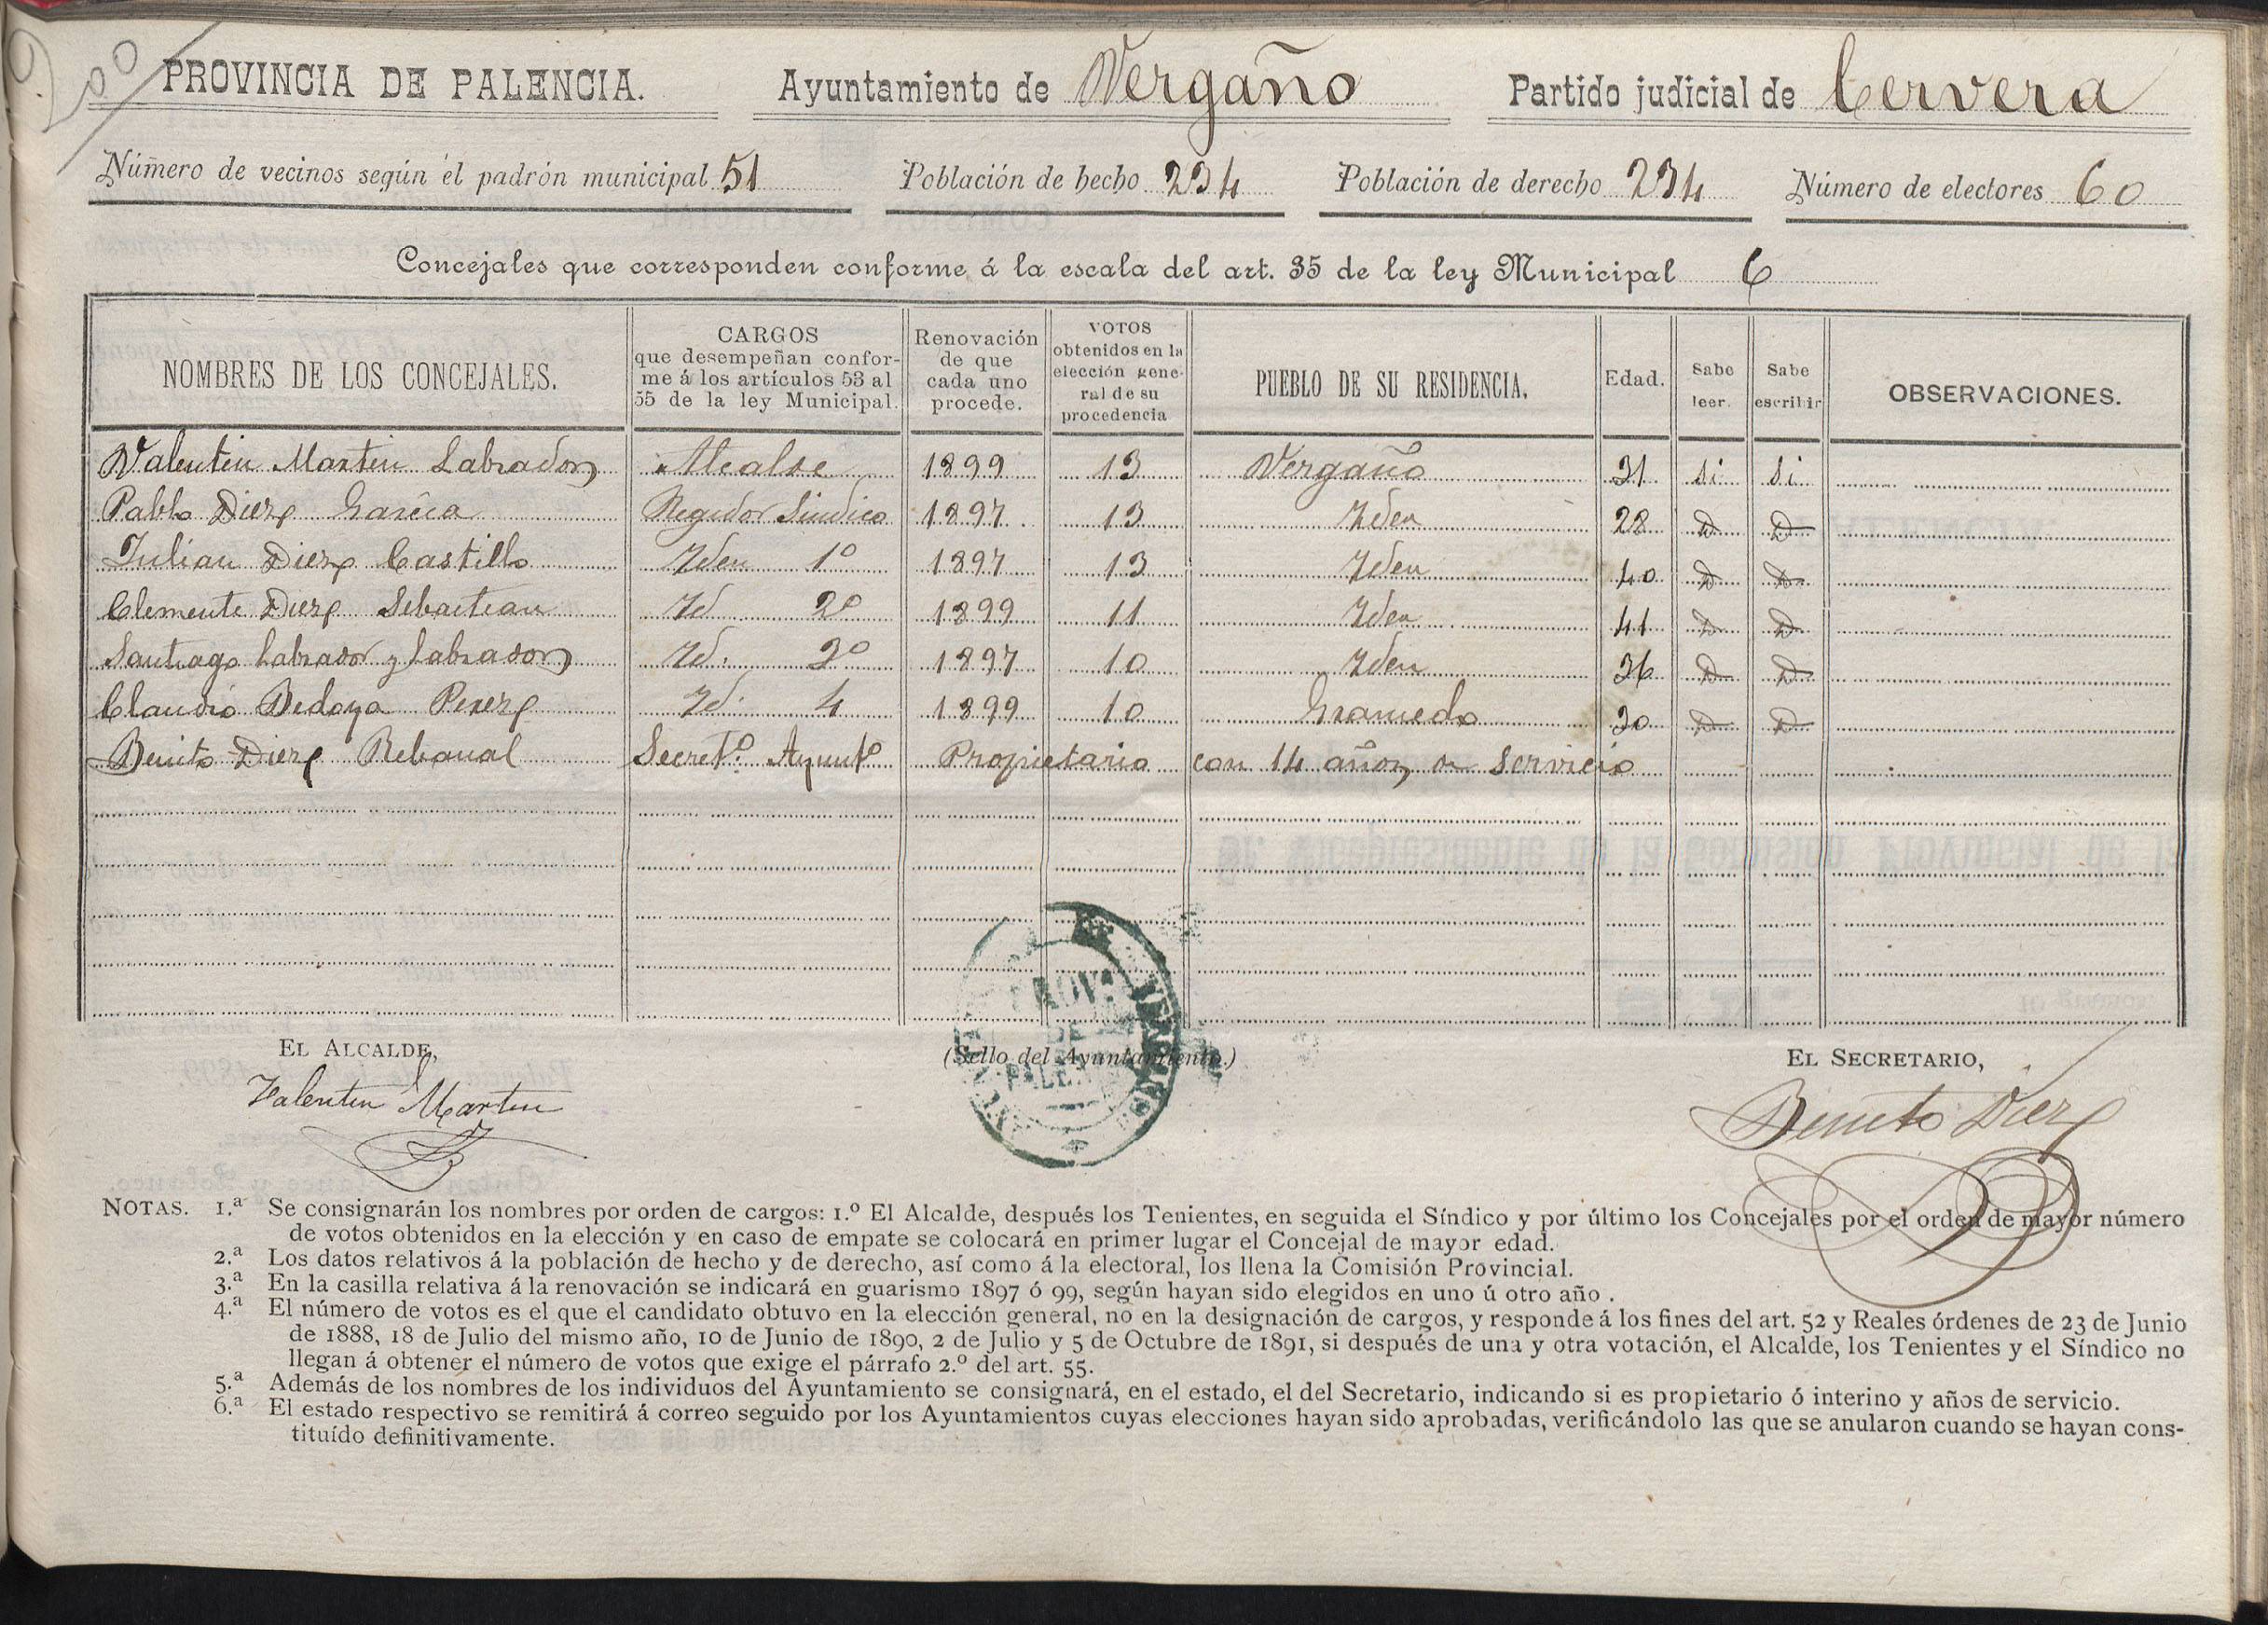 200
PROVINCIA DE PALENCIA. Ayuntamiento de Vergaño Partido judicial de Cervera
Número de vecinos según el padrón municipal 51 Población de hecho 234 Población de derecho 234 Número de electores 60
Concejales que corresponden conforme á la escala del art. 35 de la ley Municipal 6
NOMBRES DE LOS CONCEJALES. CARGOS que desempeñan conforme á los artículos 53 al 55 de la ley Municipal. Renovación de que cada uno procede. VOTOS obtenidos en la elección general de su procedencia PUEBLO DE SU RESIDENCIA. Edad. Sabe leer. Sabe escribir OBSERVACIONES.
Valentin Martin Labrador Alcalde 1899 13 Vergaño 31 si si
Pablo Diez Garcia Regidor Sindico 1897 13 Yden 28 D D
Julian Diez Castillo Yden 1º 1897 13 Yden 40 D D
Clemente Diez Sebastian Yd 2º 1899 11 Yden 41 D D
Santiago Labrador y Labrador Yd. 3º 1897 10 Yden 36 D D
Claudio Bedoya Perez Yd. 4 1899 10 Gramedo 30 D D
Benito Diez Rebanal Secretº. Ayuntº Propietario con 14 años de servicio
EL ALCALDE, (Sello del Ayuntamiento.) EL SECRETARIO,
Valentin Martin Benito Diez
NOTAS. 1.ª Se consignarán los nombres por orden de cargos: 1.º El Alcalde, después los Tenientes, en seguida el Síndico y por último los Concejales por el orden de mayor número
de votos obtenidos en la elección y en caso de empate se colocará en primer lugar el Concejal de mayor edad.
2.ª Los datos relativos á la población de hecho y de derecho, así como á la electoral, los llena la Comisión Provincial.
3.ª En la casilla relativa á la renovación se indicará en guarismo 1897 ó 99, según hayan sido elegidos en uno ú otro año .
4.ª El número de votos es el que el candidato obtuvo en la elección general, no en la designación de cargos, y responde á los fines del art. 52 y Reales órdenes de 23 de Junio
de 1888, 18 de Julio del mismo año, 10 de Junio de 1890, 2 de Julio y 5 de Octubre de 1891, si después de una y otra votación, el Alcalde, los Tenientes y el Síndico no
llegan á obtener el número de votos que exige el párrafo 2.º del art. 55.
5.ª Además de los nombres de los individuos del Ayuntamiento se consignará, en el estado, el del Secretario, indicando si es propietario ó interino y años de servicio.
6.ª El estado respectivo se remitirá á correo seguido por los Ayuntamientos cuyas elecciones hayan sido aprobadas, verificándolo las que se anularon cuando se hayan cons-
tituído definitivamente.